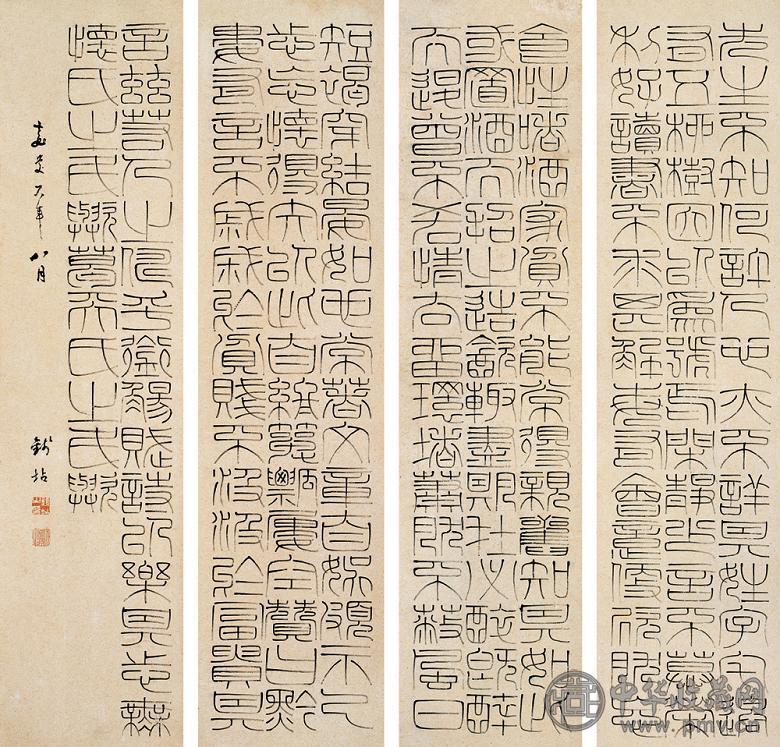 先生不知何許人也亦不詳其姓字宅邊
有五柳樹因以為號焉閑靜少言不慕榮
利好讀書不求甚解每有會意便欣然忘
食性嗜酒家貧不能常得親舊知其如此
或置酒而招之造飲輒盡期在必醉既醉
而退曾不吝情去留環堵蕭然不蔽風日
短褐穿結晏如也常著文章自娛頗示己
志忘懷得失以此自終簞瓢屢空贊曰黔
婁有言不戚戚於貧賤不汲汲於富貴其
言茲若人之儔乎銜觴賦詩以樂其志無
懷氏之民歟葛天氏之民歟
嘉慶六年八月 錢坫
中华收藏网
www.pmv.cn